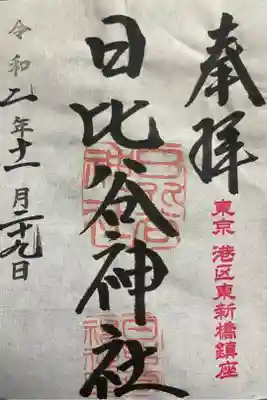 奉拝
東京 港区東新橋鎮座
日比谷神社
令和元年十一月二十九日